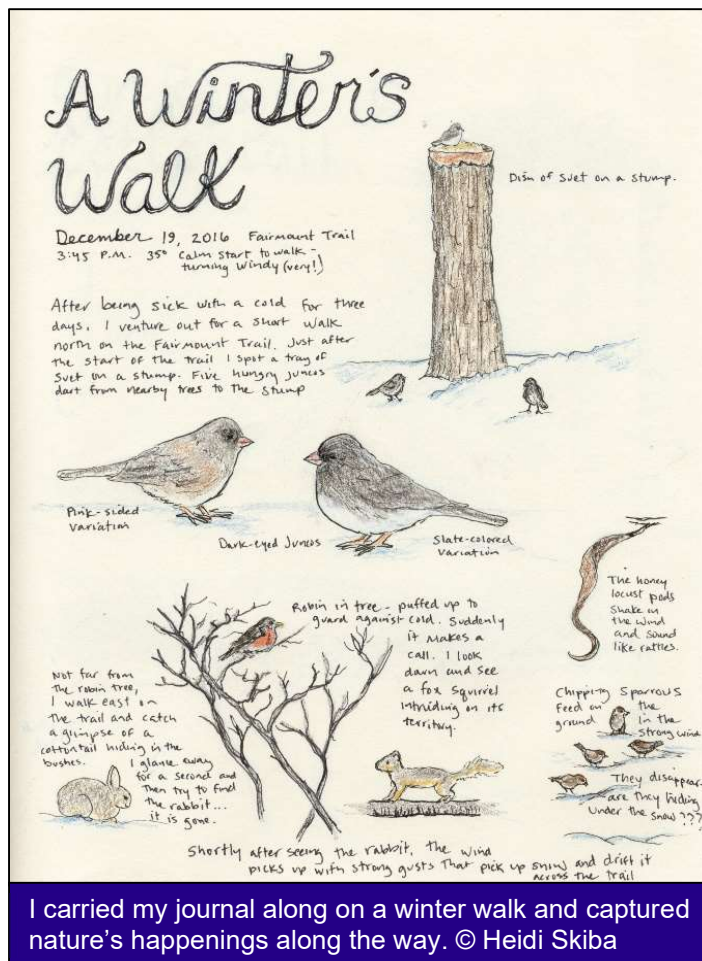 A Winter's
Walk
December 19, 2016 Fairmount Trail
3:45 P.M. 35° Calm start to walk -
turning windy (very!)
Dish of suet on a stump.
After being sick with a cold for three
days, I venture out for a short walk
north on the Fairmount Trail. Just after
the start of the trail I spot a tray of
suet on a stump. Five hungry juncos
dart from nearby trees to the stump
Pink-sided
variation
Dark-eyed Juncos
Slate-colored
variation
The honey
locust pods
shake in
the wind
and sound
like rattles.
Robin in tree - puffed up to
guard against cold. Suddenly
it makes a
call. I look
down and see
a fox squirrel
intruding on its
territory.
Not far from
the robin tree,
I walk east on
the trail and catch
a glimpse of a
cottontail hiding in the
bushes. I glance away
for a second and
then try to find
the rabbit...
it is gone.
Chipping Sparrows
feed on the
ground in the
strong wind
They disappear-
are they hiding
under the snow???
Shortly after seeing the rabbit, the wind
picks up with strong gusts that pick up snow and drift it
across the trail
I carried my journal along on a winter walk and captured
nature's happenings along the way. © Heidi Skiba